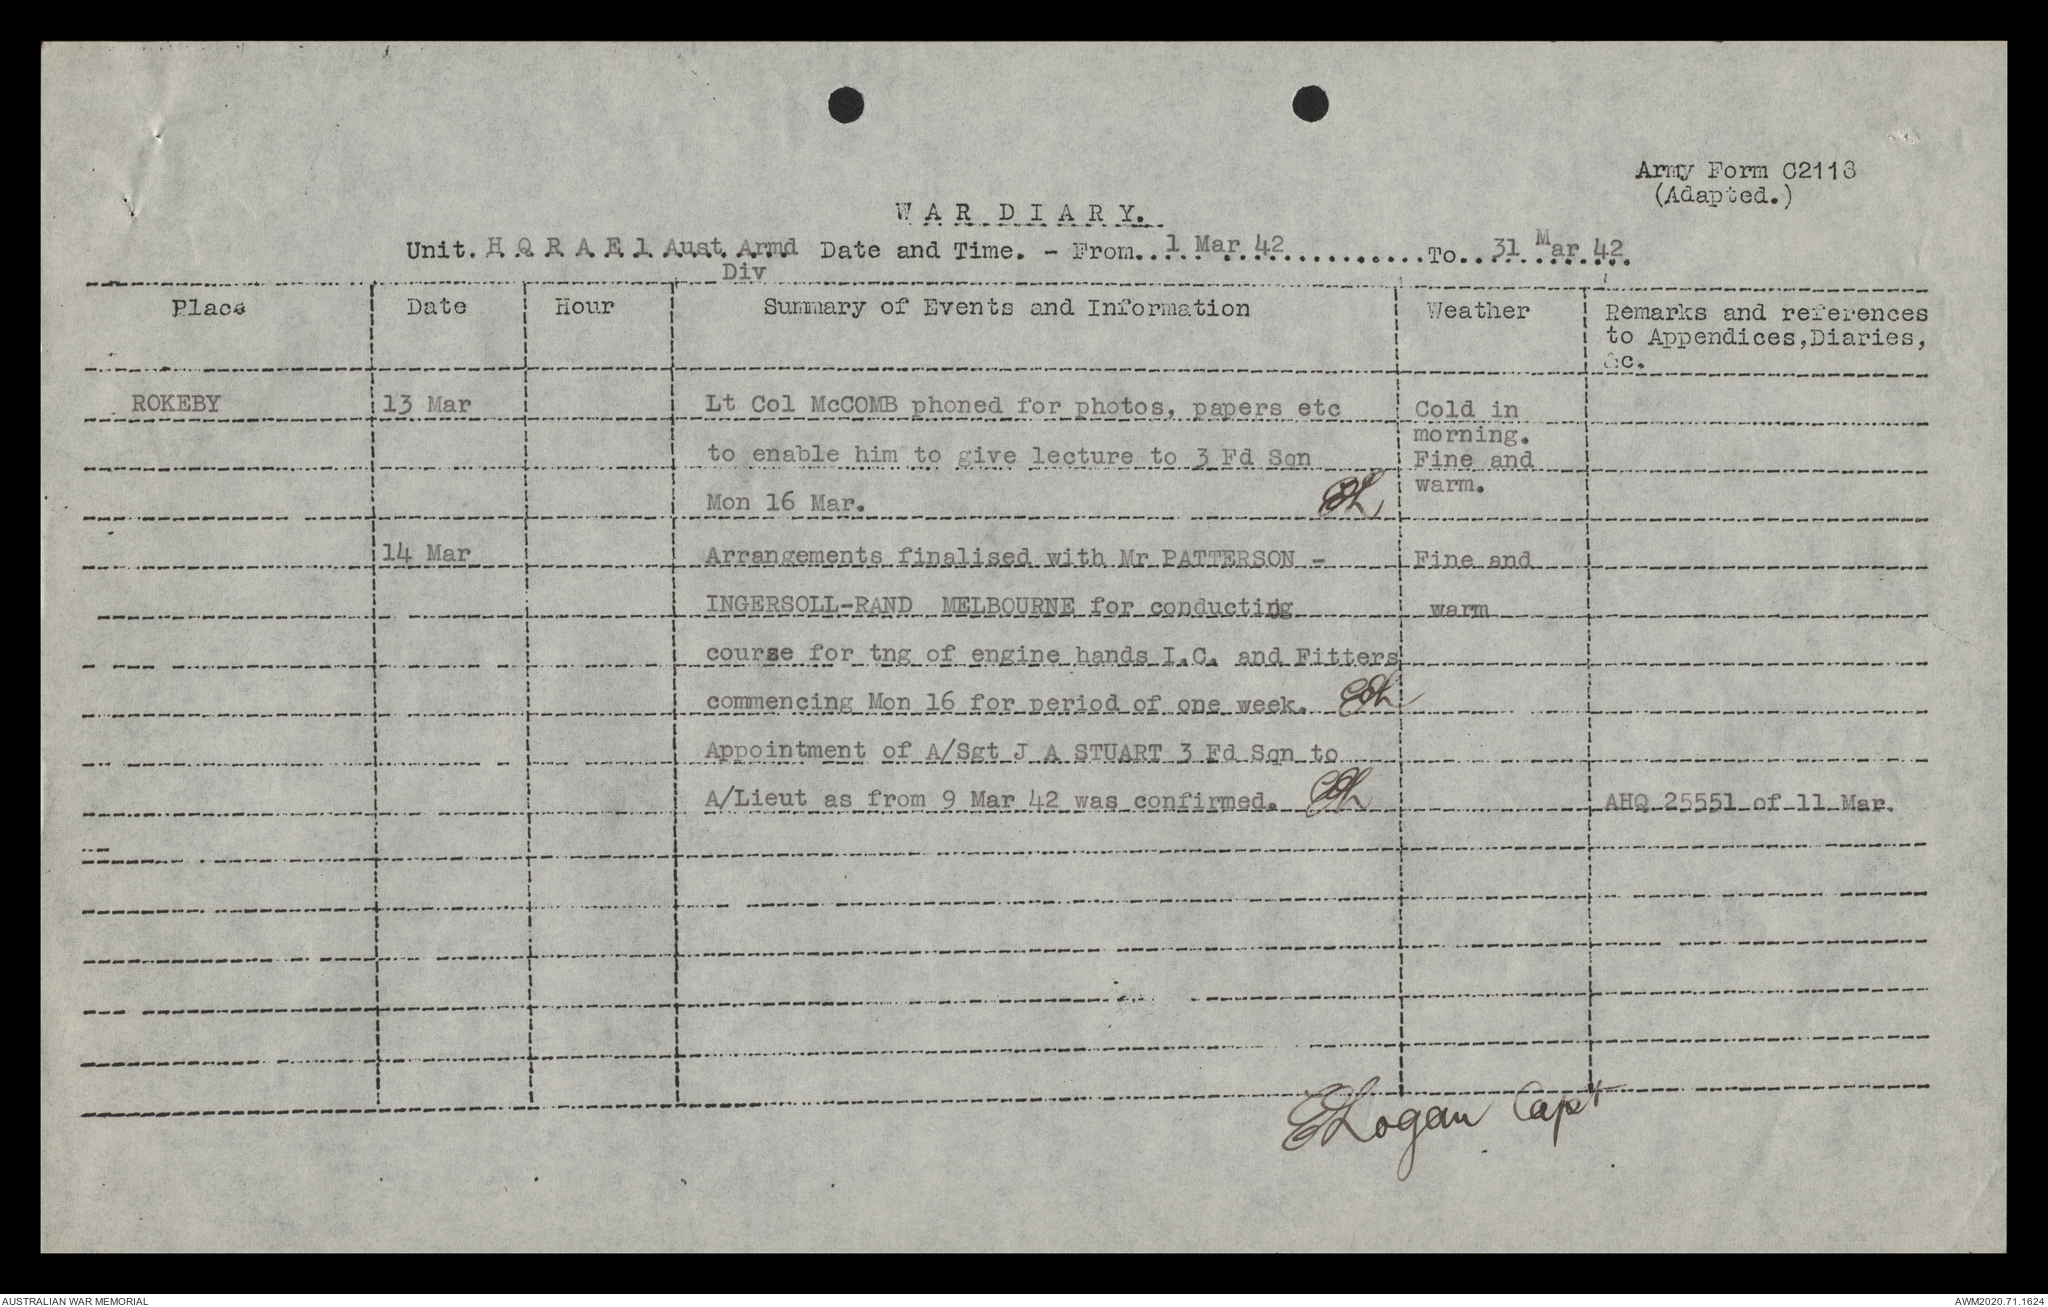 Army Form C2118
(Adapted.)
W A R D I A R Y.
Unit. H Q R A E 1 Aust Armd Div Date and Time. - From 1 Mar 42 To 31 Mar 42
Place Date Hour Summary of Events and Information Weather Remarks and references
to Appendices,Diaries,
&c.
ROKEBY 13 Mar Lt Col McCOMB phoned for photos, papers etc Cold in
morning.
to enable him to give lecture to 3 Fd Sqn Fine and
warm.
Mon 16 Mar.
14 Mar Arrangements finalised with Mr PATTERSON - Fine and
INGERSOLL-RAND MELBOURNE for conducting warm
course for tng of engine hands I.C. and Fitters
commencing Mon 16 for period of one week.
Appointment of A/Sgt J A STUART 3 Fd Sqn to
A/Lieut as from 9 Mar 42 was confirmed. AHQ 25551 of 11 Mar.
ELogan Capt
AUSTRALIAN WAR MEMORIAL
AWM2020.71.1624